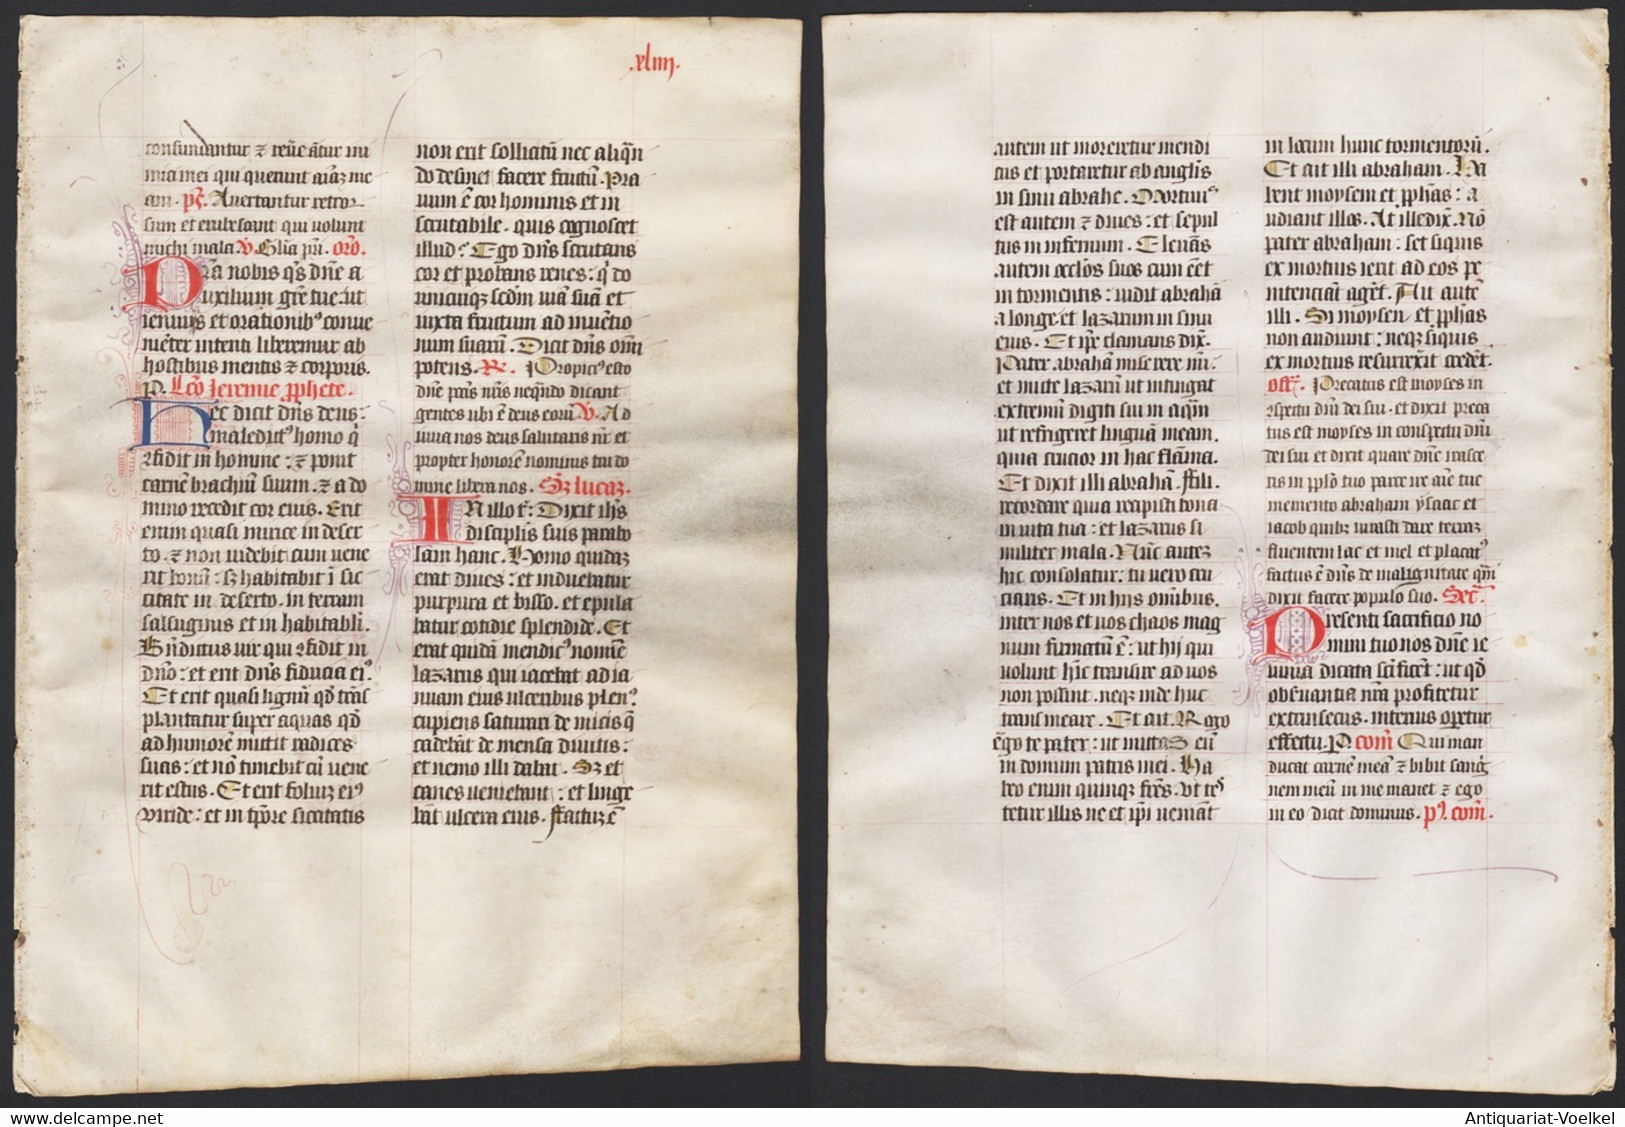 .xliiij.
confundantur ⁊ reue ātur ini
mici mei qui querunt aīaꝫ me
am. ps̄. Auertantur retror
sum et erubescant qui uolunt
michi mala. V̄. Glīa pri. orō.
PRa nobis qs̄ dn̄e a
uxilium grē tue: ut
ieiuniis et orationibꝰ conue
niēter intenti liberemur ab
hostibus mentis ⁊ corporis.
P. Lcō Jeremie ꝓphete.
Hec dicit dn̄s deus:
maledictꝰ homo q̄
ꝯfidit in homine: ⁊ ponit
carnē brachiū suum. ⁊ a do
mino recedit cor eius. Erit
enim quasi mirice in deser
to. ⁊ non uidebit cum uene
rit bonū: sꝫ habitabit ī sic
citate in deserto. in terram
salsuginis et in habitabilē.
Bn̄dictus uir qui ꝯfidit in
dn̄o: et erit dn̄s fiducia eiꝰ.
Et erit quasi lignū qd̄ trās
plantatur super aquas qd̄
ad humorē mittit radices
suas: et nō timebit cū uene
rit estus. Et erit foliuꝫ eiꝰ
viride: et in tp̄re siccitatis
non erit sollicitū nec aliqn̄
do desinet facere fructū. Pra
uum ē cor hominis et in
scrutabile. quis cognoscet
illud? Ego dn̄s scrutans
cor et probans renes: q̄ do
unicuiqꝫ scdm̄ uiā suā et
iuxta fructum ad inuētio
num suarū. Dicit dn̄s om̄i
potens. R̄. Propiciꝰ esto
dn̄e pctīs nr̄is neqn̄do dicant
gentes ubi ē deus eorū V̄. Ad
iuua nos deus salutaris nr̄ et
propter honorē nominis tui do
mine libera nos. Sꝫ lucaꝫ.
IN illo t̄: Dixit ihs̄
discipl̄is suis parabo
lam hanc. Homo quidaꝫ
erat diues: et induebatur
purpura et bisso. et epula
batur cotidie splendide. Et
erat quidā mendicꝰ nomīe
lazarus qui iacebat ad ia
nuam eius ulceribus plenꝰ.
cupiens saturari de micis q̄
cadebāt de mensa diuitis:
et nemo illi dabat. Sꝫ et
canes ueniebant: et linge
bāt ulcera eius. Factuꝫ ē
autem ut moreretur mendi
cus et portaretur ab angl̄is
in sinu abrahe. Mortuꝰ
est autem ⁊ diues: et sepul
tus in infernum. Eleuās
autem ocl̄os suos cum eēt
in tormentis: uidit abrahā
a longe et lazarum in sinu
eius. Et ip̄e clamans dix̄.
Pater abrahā miserere mī.
et mitte lazarū ut intingat
extremū digiti sui in aqm̄
ut refrigeret linguā meam.
quia crucior in hac flāma.
Et dixit illi abrahā. Fili.
recordare quia recepisti bona
in uita tua: et lazarus si
militer mala. Nūc auteꝫ
hic consolatur: tu uero cru
ciaris. Et in hijs om̄ibus.
inter nos et uos chaos mag
num firmatū ē: ut hij qui
uolunt hīc transire ad uos
non possint. neqꝫ inde huc
transmeare. Et ait. Rogo
ēgo te pater: ut mittas eū
in domum patris mei. Ha
beo enim quinqꝫ frēs. Ut tes̄
tetur illis ne et ip̄i ueniāt
in locum hunc tormentorū.
Et ait illi abraham. Ha
bent moysem et ꝓphās: a
udiant illos. At ille dix̄. Nō
pater abraham: set siquis
ex mortuis ierit ad eos pe
nitenciā agēt. Ait autē
illi. Si moysen et ꝓphās
non audiunt: neqꝫ siquis
ex mortuis resurrexit credēt.
off̄. Precatus est moyses in
ꝯspectu dn̄i dei sui. et dixit preca
tus est moyses in conspectu dn̄i
dei sui et dixit quare dn̄e irasce
ris in ppl̄o tuo parce ire aīe tue
memento abraham ysaac et
iacob quibꝫ iurasti dare terraꝫ
fluentem lac et mel et placatꝰ
factus ē dn̄s de malignitate qm̄
dixit facere populo suo. Secr̄.
PResenti sacrificio no
mini tuo nos dn̄e ie
iunia dicata sc̄ificēt: ut qd̄
obseruantia nr̄a profitetur
extrinsecus. interius operetur
effectu. P. com̄ Qui man
ducat carnē meā ⁊ bibit sanḡ
nem meū in me manet ⁊ ego
in eo dicit dominus. pꝰ. com̄.
Antiquariat-Voelkel